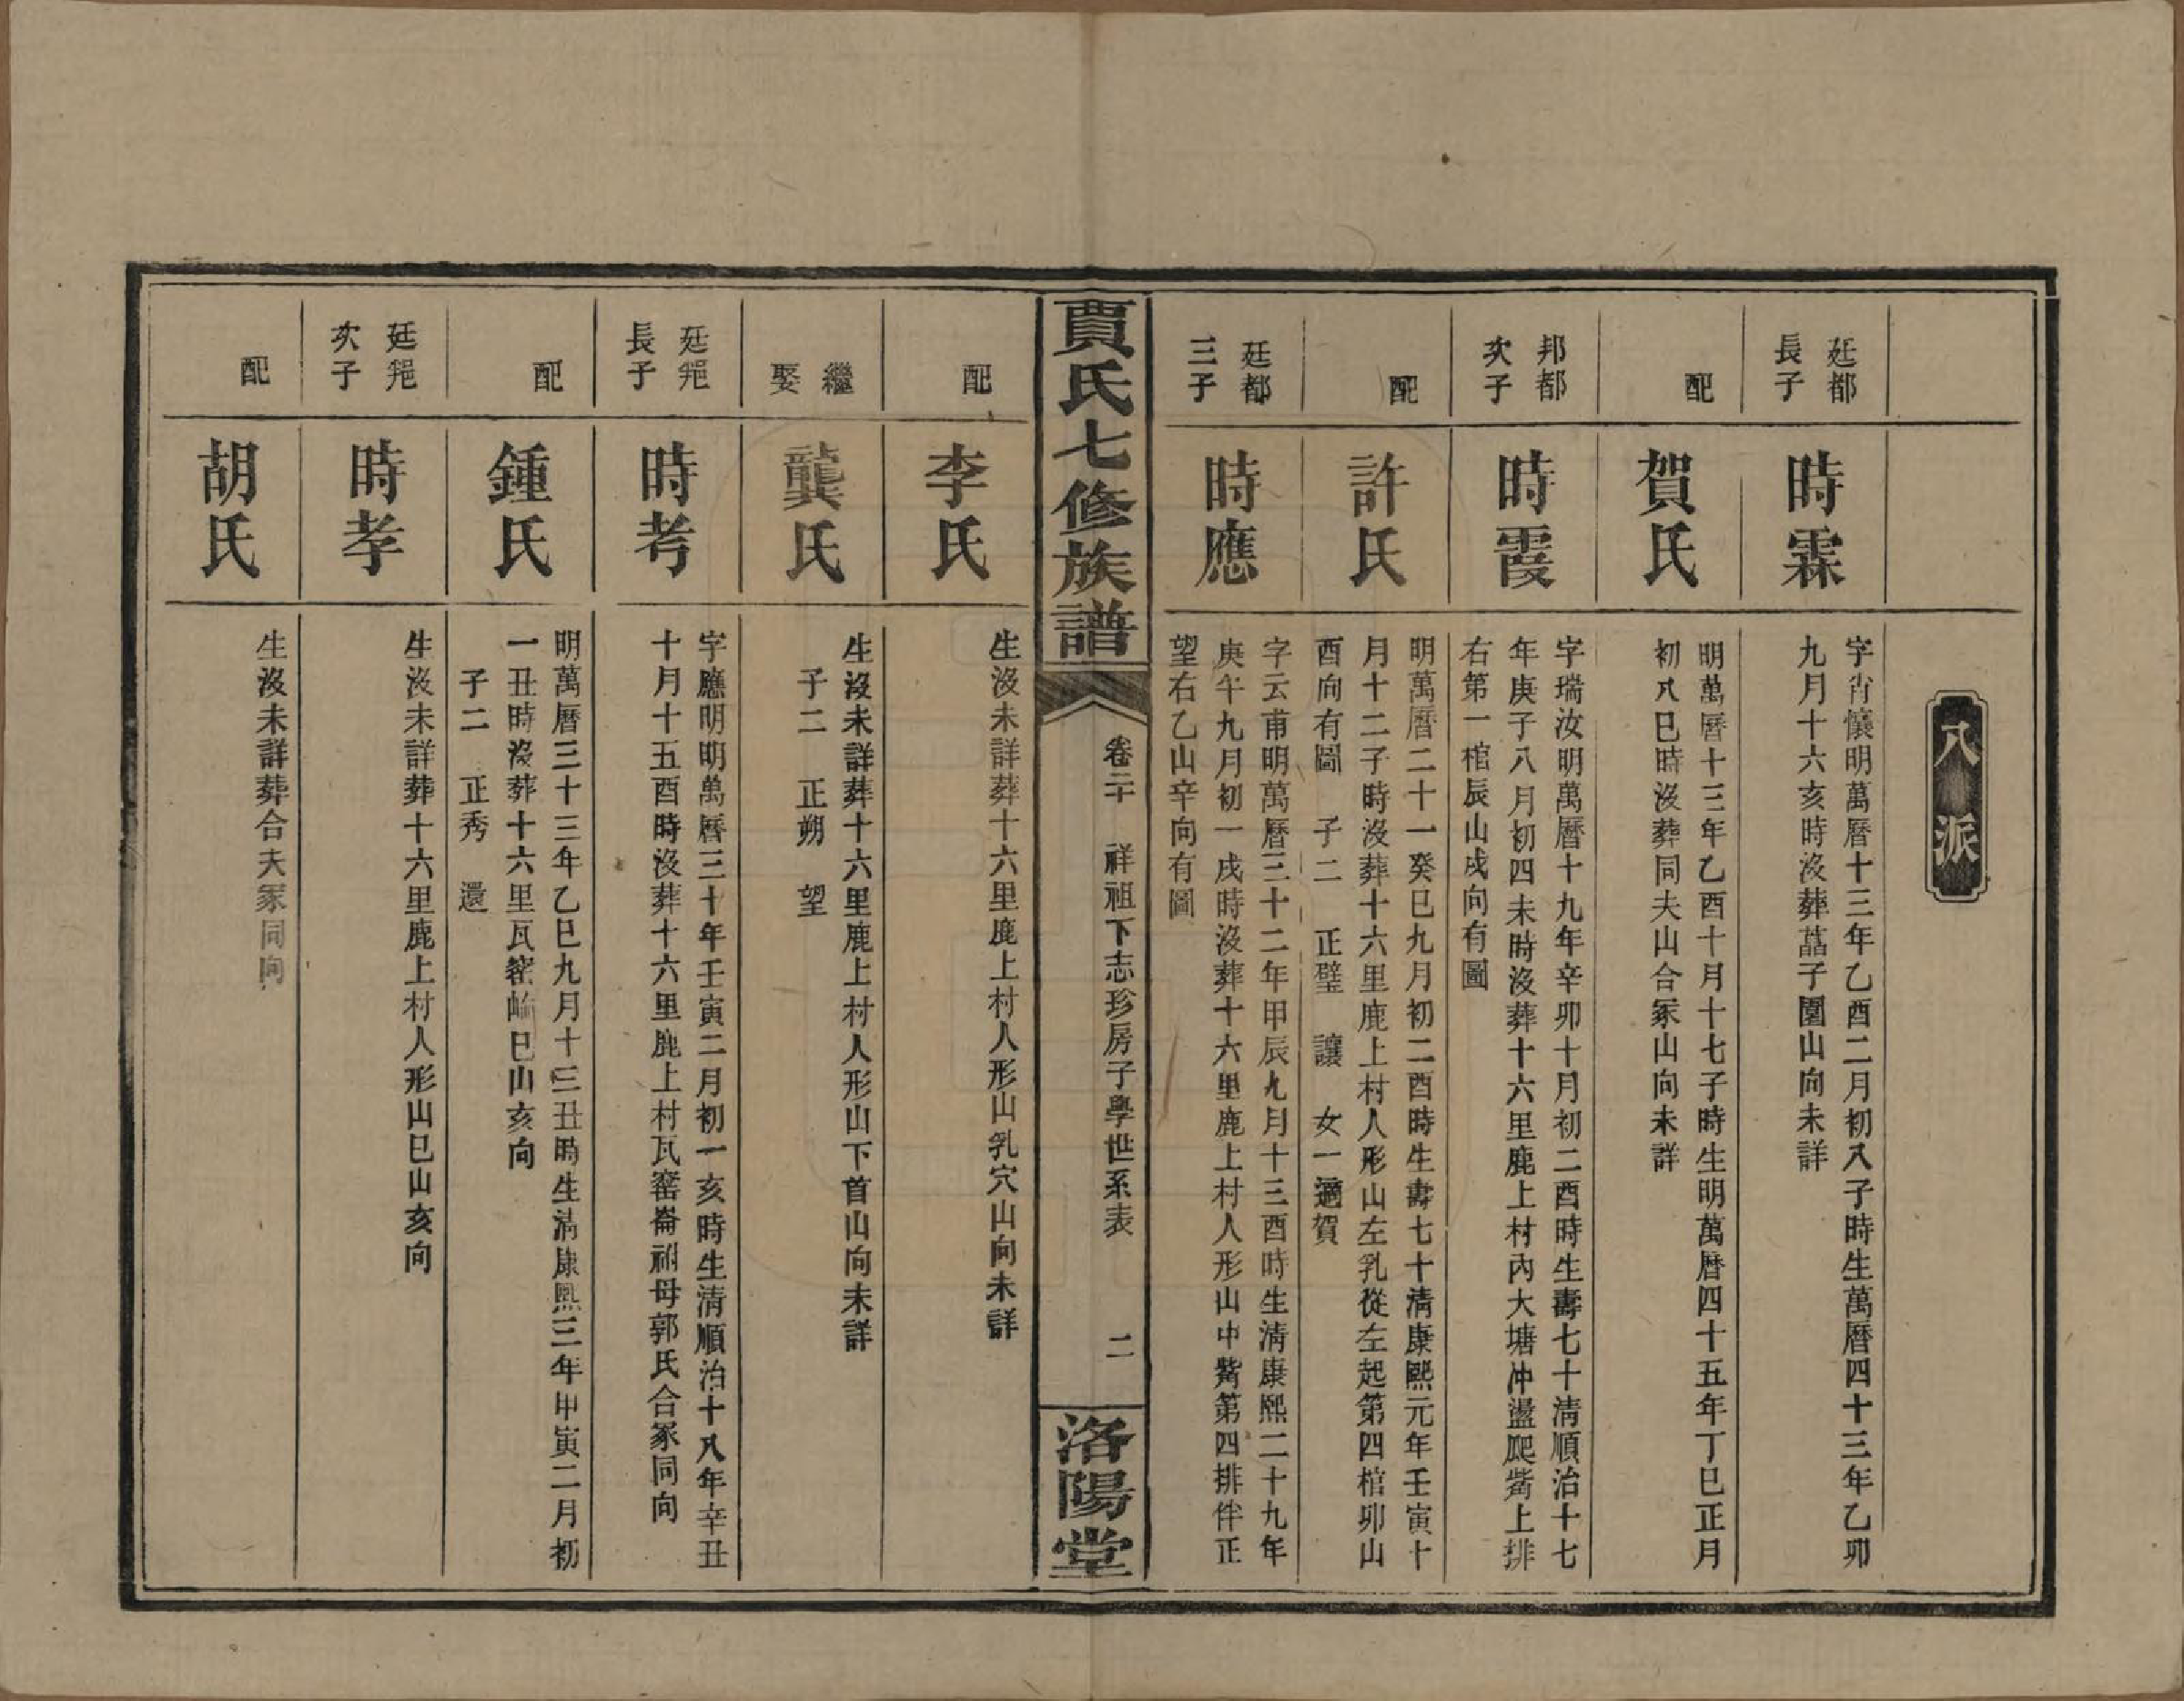 八派
廷都
長子
時霖
字肯懷明萬曆十三年乙酉二月初八子時生萬曆四十三年乙卯
九月十六亥時沒葬蕌子園山向未詳
配
賀氏
明萬曆十三年乙酉十月十七子時生明萬曆四十五年丁巳正月
初八巳時沒葬同夫山合冢山向未詳
邦都
次子
時霞
字瑞汝明萬曆十九年辛卯十月初二酉時生壽七十清順治十七
年庚子八月初四未時沒葬十六里鹿上村內大塘冲盪爬觜上排
右第一棺辰山戌向有圖
配
許氏
明萬曆二十一癸巳九月初二酉時生壽七十清康熙元年壬寅十
月十二子時沒葬十六里鹿上村人形山左乳從左起第四棺卯山
酉向有圖 子二 正璧 讓 女一適賀
廷都
三子
時應
字云甫明萬曆三十二年甲辰九月十三酉時生清康熙二十九年
庚午九月初一戌時沒葬十六里鹿上村人形山中觜第四排伴正
望右乙山辛向有圖
賈氏七修族譜
卷二十 祥祖下志珍房子學世系表 二
洛陽堂
配
李氏
生沒未詳葬十六里鹿上村人形山乳穴山向未詳
繼
娶
龔氏
生沒未詳葬十六里鹿上村人形山下首山向未詳
子二 正朔 望
廷
長子
時考
字應明明萬曆三十年壬寅二月初一亥時生清順治十八年辛丑
十月十五酉時沒葬十六里鹿上村瓦窰崙祔母郭氏合冢同向
配
鍾氏
明萬曆三十三年乙巳九月十三丑時生清康熙三年甲寅二月初
一丑時沒葬十六里瓦窰崙巳山亥向
子二 正秀 還
廷
次子
時孝
生沒未詳葬十六里鹿上村人形山巳山亥向
配
胡氏
生沒未詳葬合夫冢同向